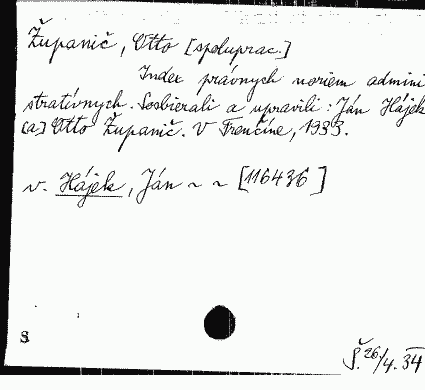 Županič, Otto [spoluprac.]
Index právnych noriem admini
stratívnych. Sosbierali a upravili: Ján Hájek
(a) Otto Županič. V Trenčíne, 1933.
v. Hájek, Ján ~ ~ [116436]
S
Š. 26/4. 34